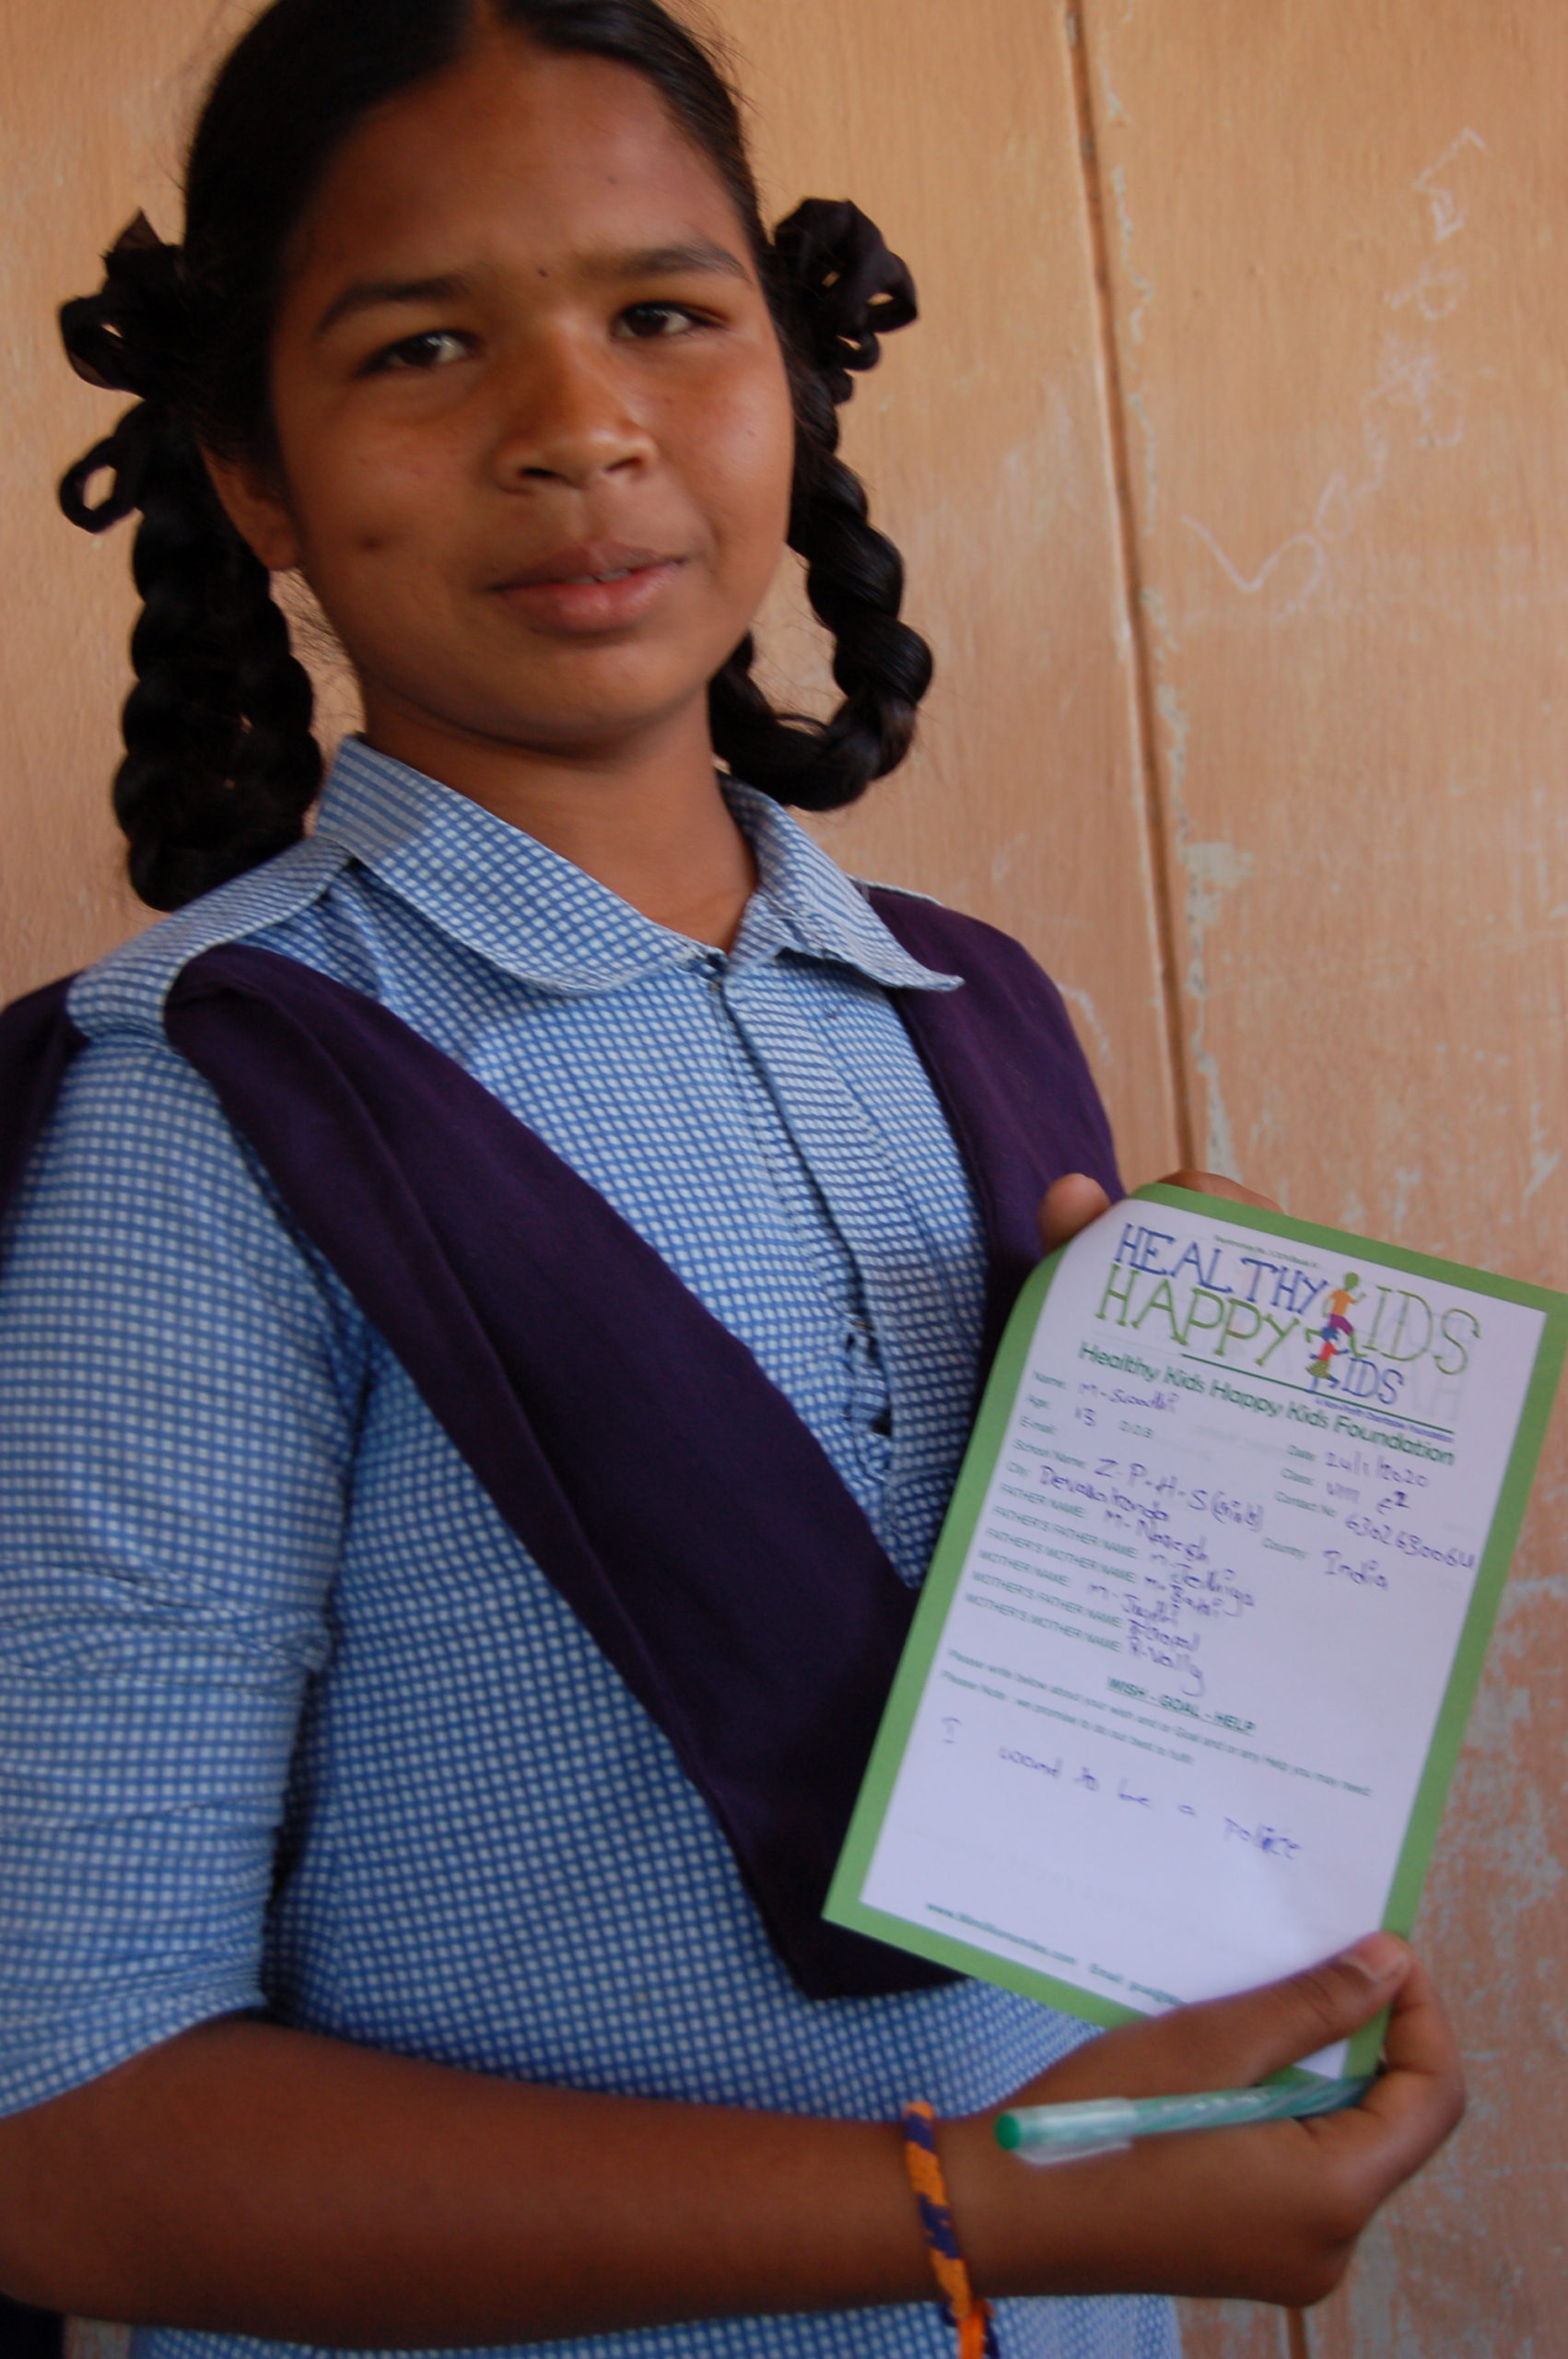 HEALTHY KIDS
HAPPY KIDS
Healthy Kids Happy Kids Foundation
Name: M-Swathi Date: 24/1/2020
Age: 13 D.O.B Class: VIII
E-mail: Contact No: 6302630064
School Name: Z.P.H.S (Girls)
City: Devarakonda Country: India
FATHER NAME: M-Naresh
FATHER'S FATHER NAME:
FATHER'S MOTHER NAME:
MOTHER NAME: M-
MOTHER'S FATHER NAME:
MOTHER'S MOTHER NAME:
WISH - GOAL - HELP
Please write below about your wish and or Goal and or any Help you may need
Please Note: we promise to do our best to fulfil
I want to be a police